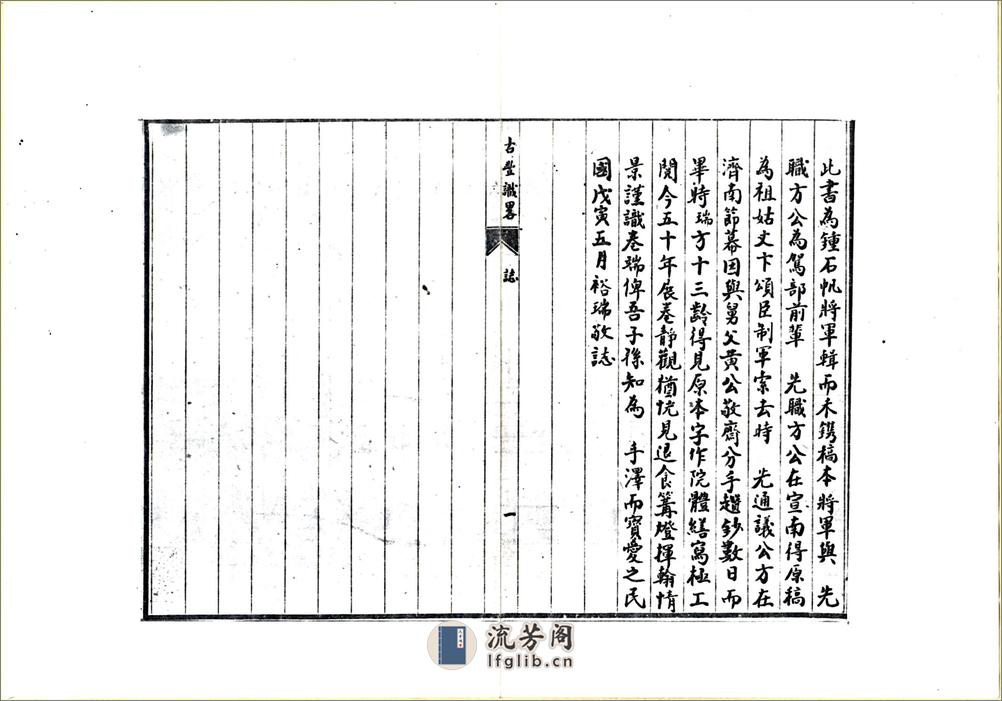 此書為鍾石帆將軍輯而未鐫稿本將軍與　先
職方公為駕部前輩　先職方公在宣南得原稿
為祖姑丈卞頌臣制軍索去時　先通議公方在
濟南節幕因與舅父黄公敬齋分手趕鈔數日而
畢時瑞方十三齡得見原本字作院體繕寫極工
閱今五十年展卷靜觀猶恍見退食篝燈揮翰情
景謹識卷端俾吾子孫知為　手澤而寶愛之民
國戊寅五月裕瑞敬誌
古豐識畧
誌
一
流芳阁
lfglib.cn